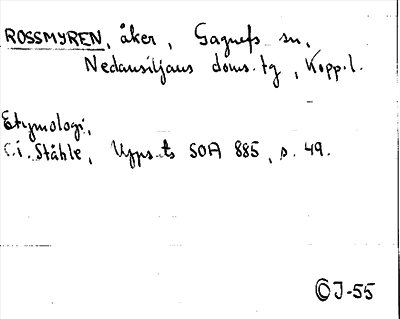 ROSSMYREN, åker, Gagnefs sn,
Nedansiljans doms.tg, Kopp.l.
Etymologi,
C.I. Ståhle, Upps.ts SOA 885, s. 49.
©J-55